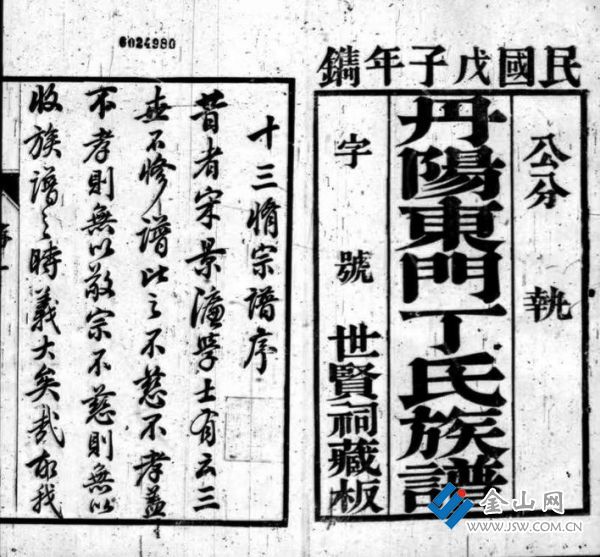 6024980
民國戊子年鐫
公分 執
丹陽東門丁氏族譜
字號 世賢祠藏板
十三脩宗譜序
昔者宋景濂學士有云三
世不修譜比之不慈不孝蓋
不孝則無以敬宗不慈則無以
收族譜之時義大矣哉我
金山网
WWW.JSW.COM.CN